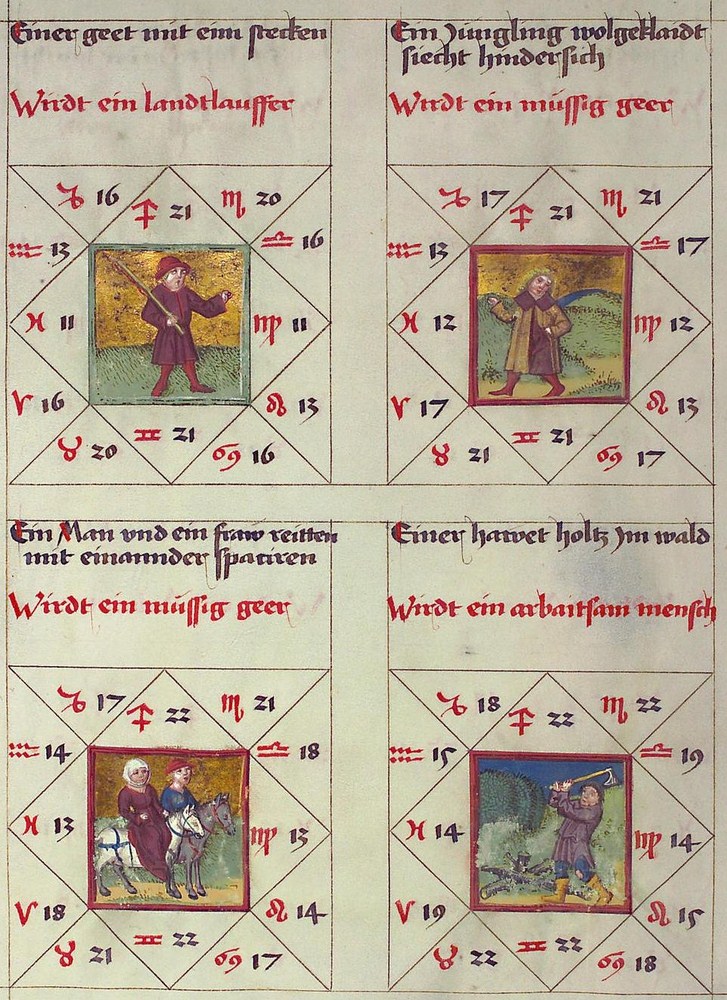 Einer geet mit eim stecken
Wirdt ein landtlauffer
♑ 16
♐ 21
♏ 20
♒ 13
♎ 16
♓ 11
♍ 11
♈ 16
♌ 13
♉ 20
♊ 21
♋ 16
Ein Jüngling wolgeklaidt
siecht hindersich
Wirdt ein müssig geer
♑ 17
♐ 21
♏ 21
♒ 13
♎ 17
♓ 12
♍ 12
♈ 17
♌ 13
♉ 21
♊ 21
♋ 17
Ein Man vnd ein fraw reitten
mit einannder spaciren
Wirdt ein müssig geer
♑ 17
♐ 22
♏ 21
♒ 14
♎ 18
♓ 13
♍ 13
♈ 18
♌ 14
♉ 21
♊ 22
♋ 17
Einer hawet holtz Jm wald
Wirdt ein arbaitsam mensch
♑ 18
♐ 22
♏ 22
♒ 15
♎ 19
♓ 14
♍ 14
♈ 19
♌ 15
♉ 22
♊ 22
♋ 18